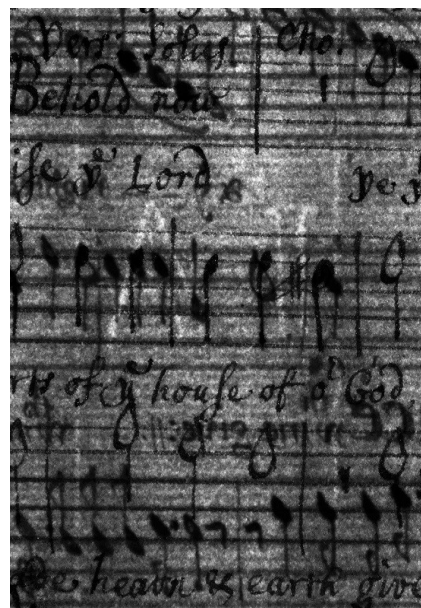 Vers: Solus Cho.
Behold now
ise yᵉ Lord ye y
rts of yᵉ house of oʳ God,
heavn & earth give